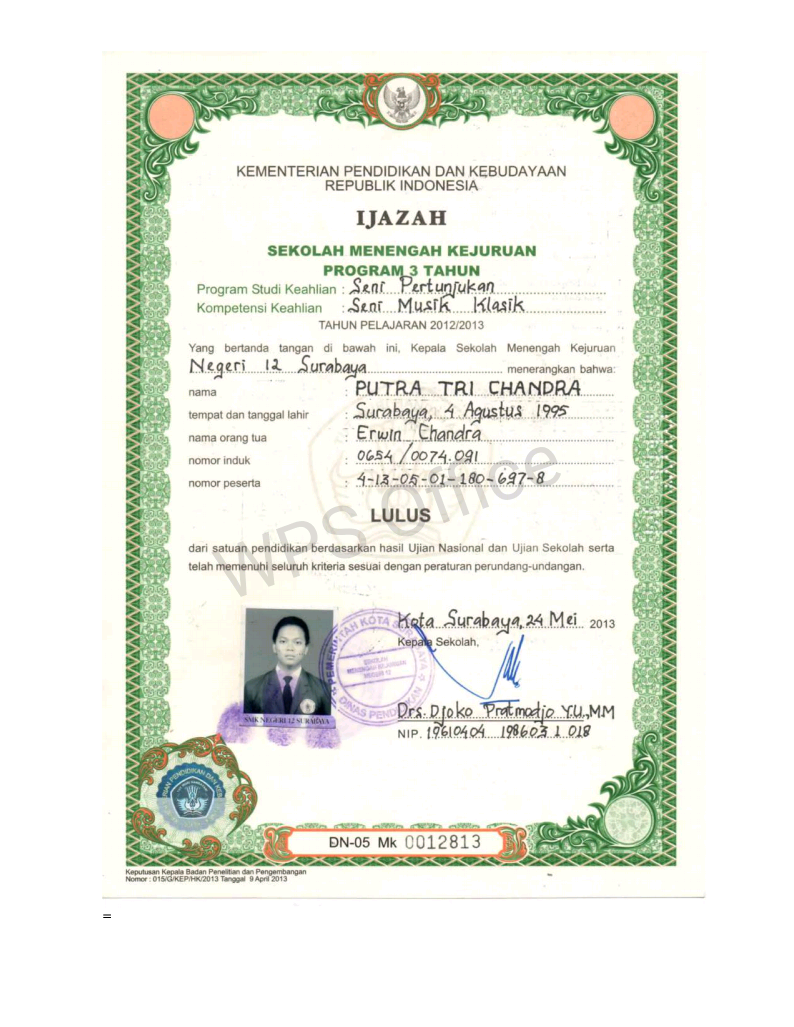 KEMENTERIAN PENDIDIKAN DAN KEBUDAYAAN
REPUBLIK INDONESIA
IJAZAH
SEKOLAH MENENGAH KEJURUAN
PROGRAM 3 TAHUN
Program Studi Keahlian : Seni Pertunjukan
Kompetensi Keahlian : Seni Musik Klasik
TAHUN PELAJARAN 2012/2013
Yang bertanda tangan di bawah ini, Kepala Sekolah Menengah Kejuruan
Negeri 12 Surabaya menerangkan bahwa:
nama : PUTRA TRI CHANDRA
tempat dan tanggal lahir : Surabaya, 4 Agustus 1995
nama orang tua : Erwin Chandra
nomor induk : 0654/0074.091
nomor peserta : 4-13-05-01-180-697-8
WPS Office
LULUS
dari satuan pendidikan berdasarkan hasil Ujian Nasional dan Ujian Sekolah serta
telah memenuhi seluruh kriteria sesuai dengan peraturan perundang-undangan.
Kota Surabaya, 24 Mei 2013
Kepala Sekolah,
PEMERINTAH KOTA SURABAYA
SEKOLAH
MENENGAH KEJURUAN
NEGERI 12
DINAS PENDIDIKAN
SMK NEGERI 12 SURABAYA
Drs. Djoko Pratmodjo Y.U., MM
NIP. 19610404 198603 1 018
DN-05 Mk 0012813
Keputusan Kepala Badan Penelitian dan Pengembangan
Nomor : 015/G/KEP/HK/2013 Tanggal 9 April 2013
=